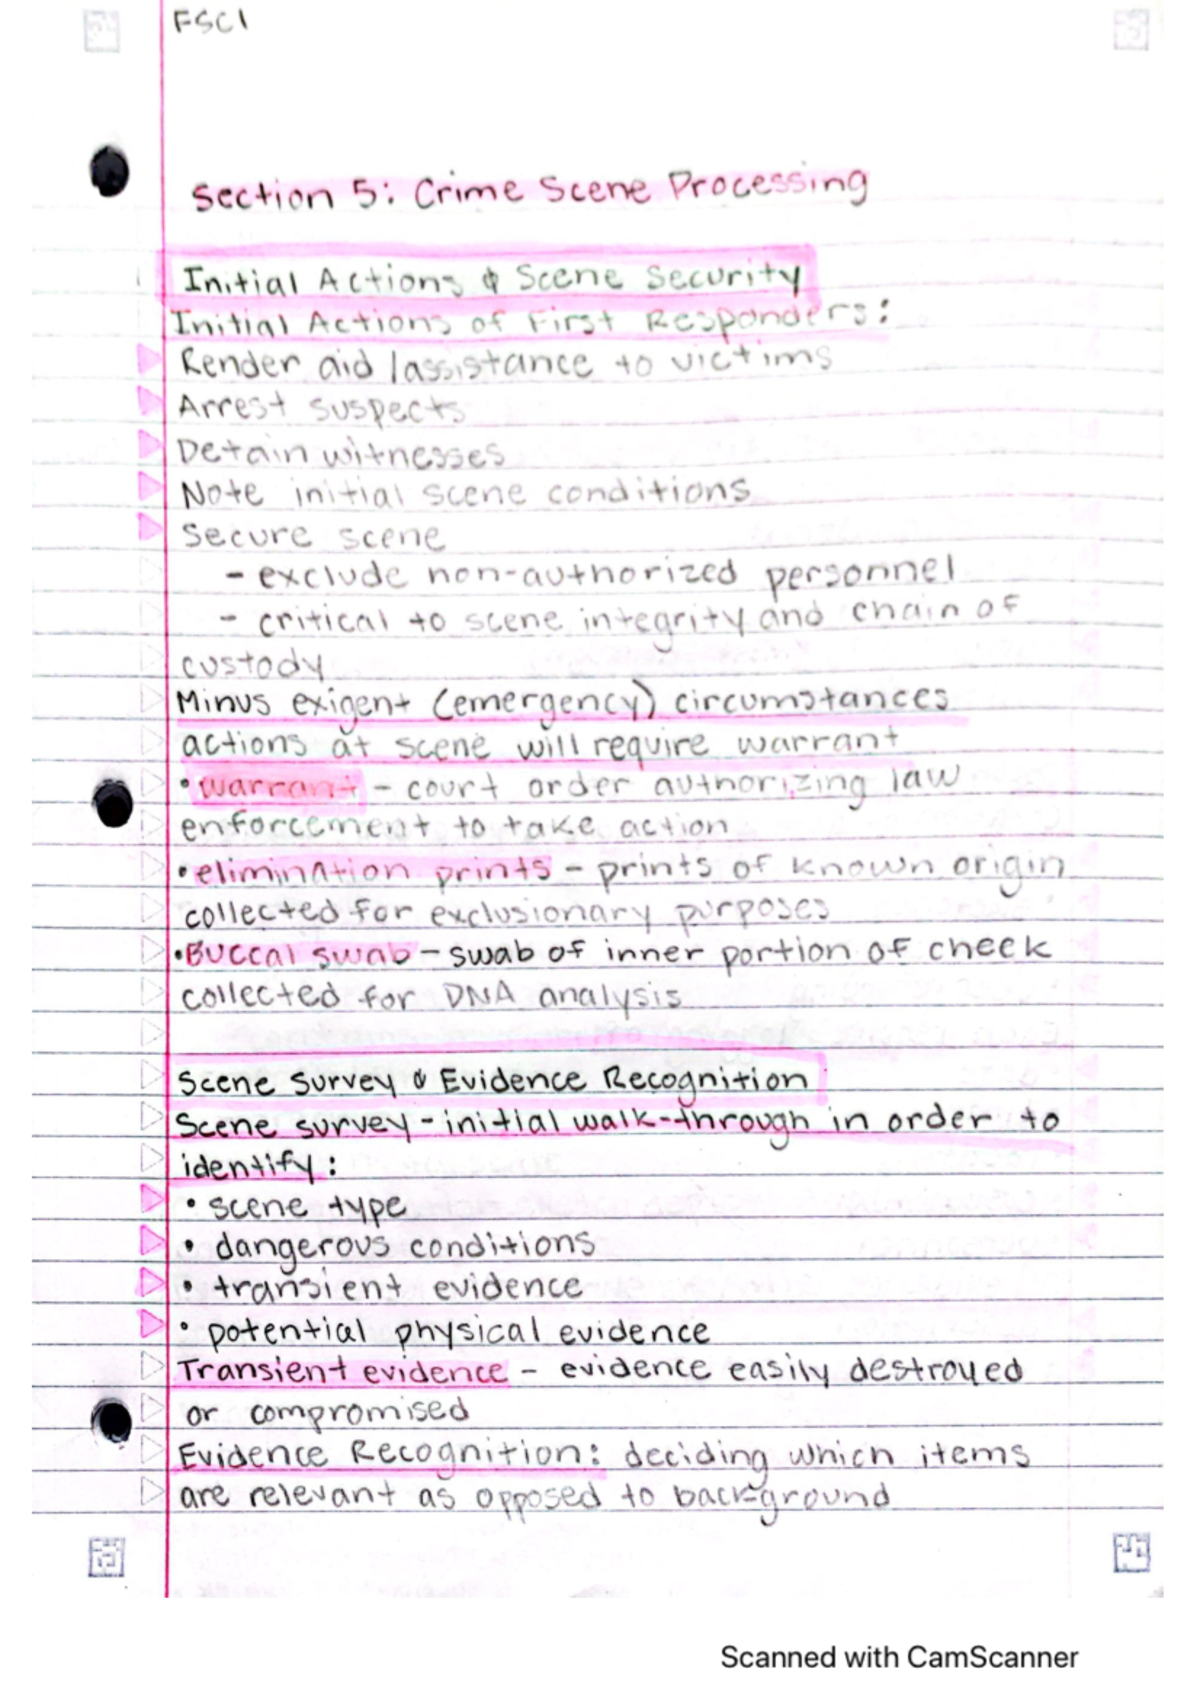 FSCI
Section 5: Crime Scene Processing
Initial Actions & Scene Security
Initial Actions of First Responders:
Render aid/assistance to victims
Arrest suspects
Detain witnesses
Note initial scene conditions
Secure scene
- exclude non-authorized personnel
- critical to scene integrity and chain of
custody
Minus exigent (emergency) circumstances
actions at scene will require warrant
• warrant - court order authorizing law
enforcement to take action
• elimination prints - prints of known origin
collected for exclusionary purposes
• Buccal swab - swab of inner portion of cheek
collected for DNA analysis
Scene Survey & Evidence Recognition
Scene survey - initial walk-through in order to
identify:
• scene type
• dangerous conditions
• transient evidence
• potential physical evidence
Transient evidence - evidence easily destroyed
or compromised
Evidence Recognition: deciding which items
are relevant as opposed to background
Scanned with CamScanner